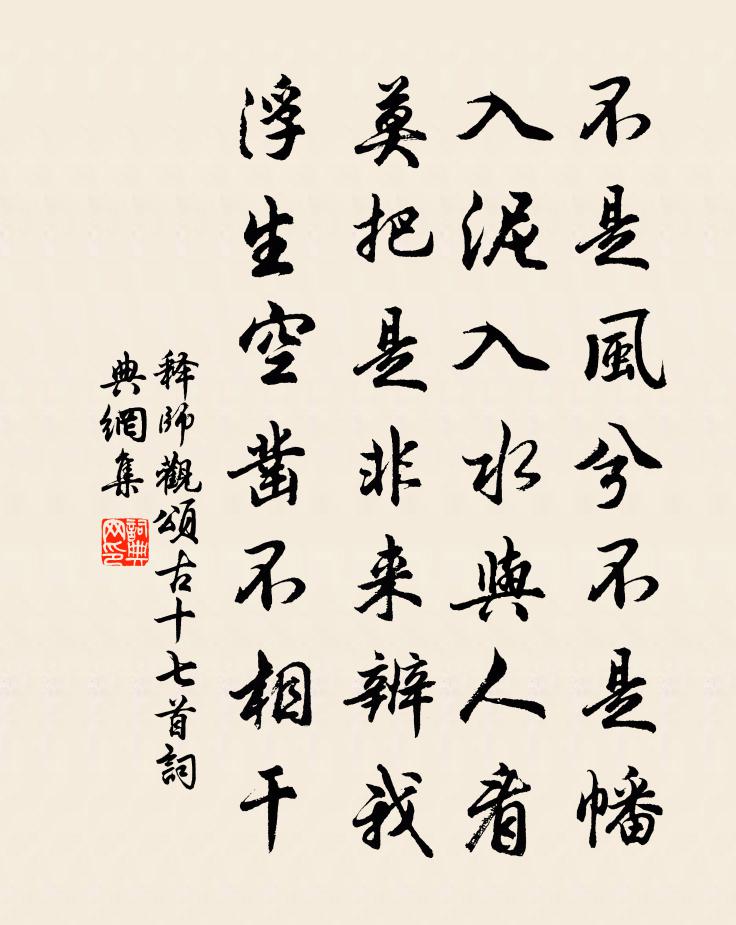 不是風兮不是幡
入泥入水與人看
莫把是非来辨我
浮生空凿不相干
释師觀頌古十七首詞
典網集
詞典
网印